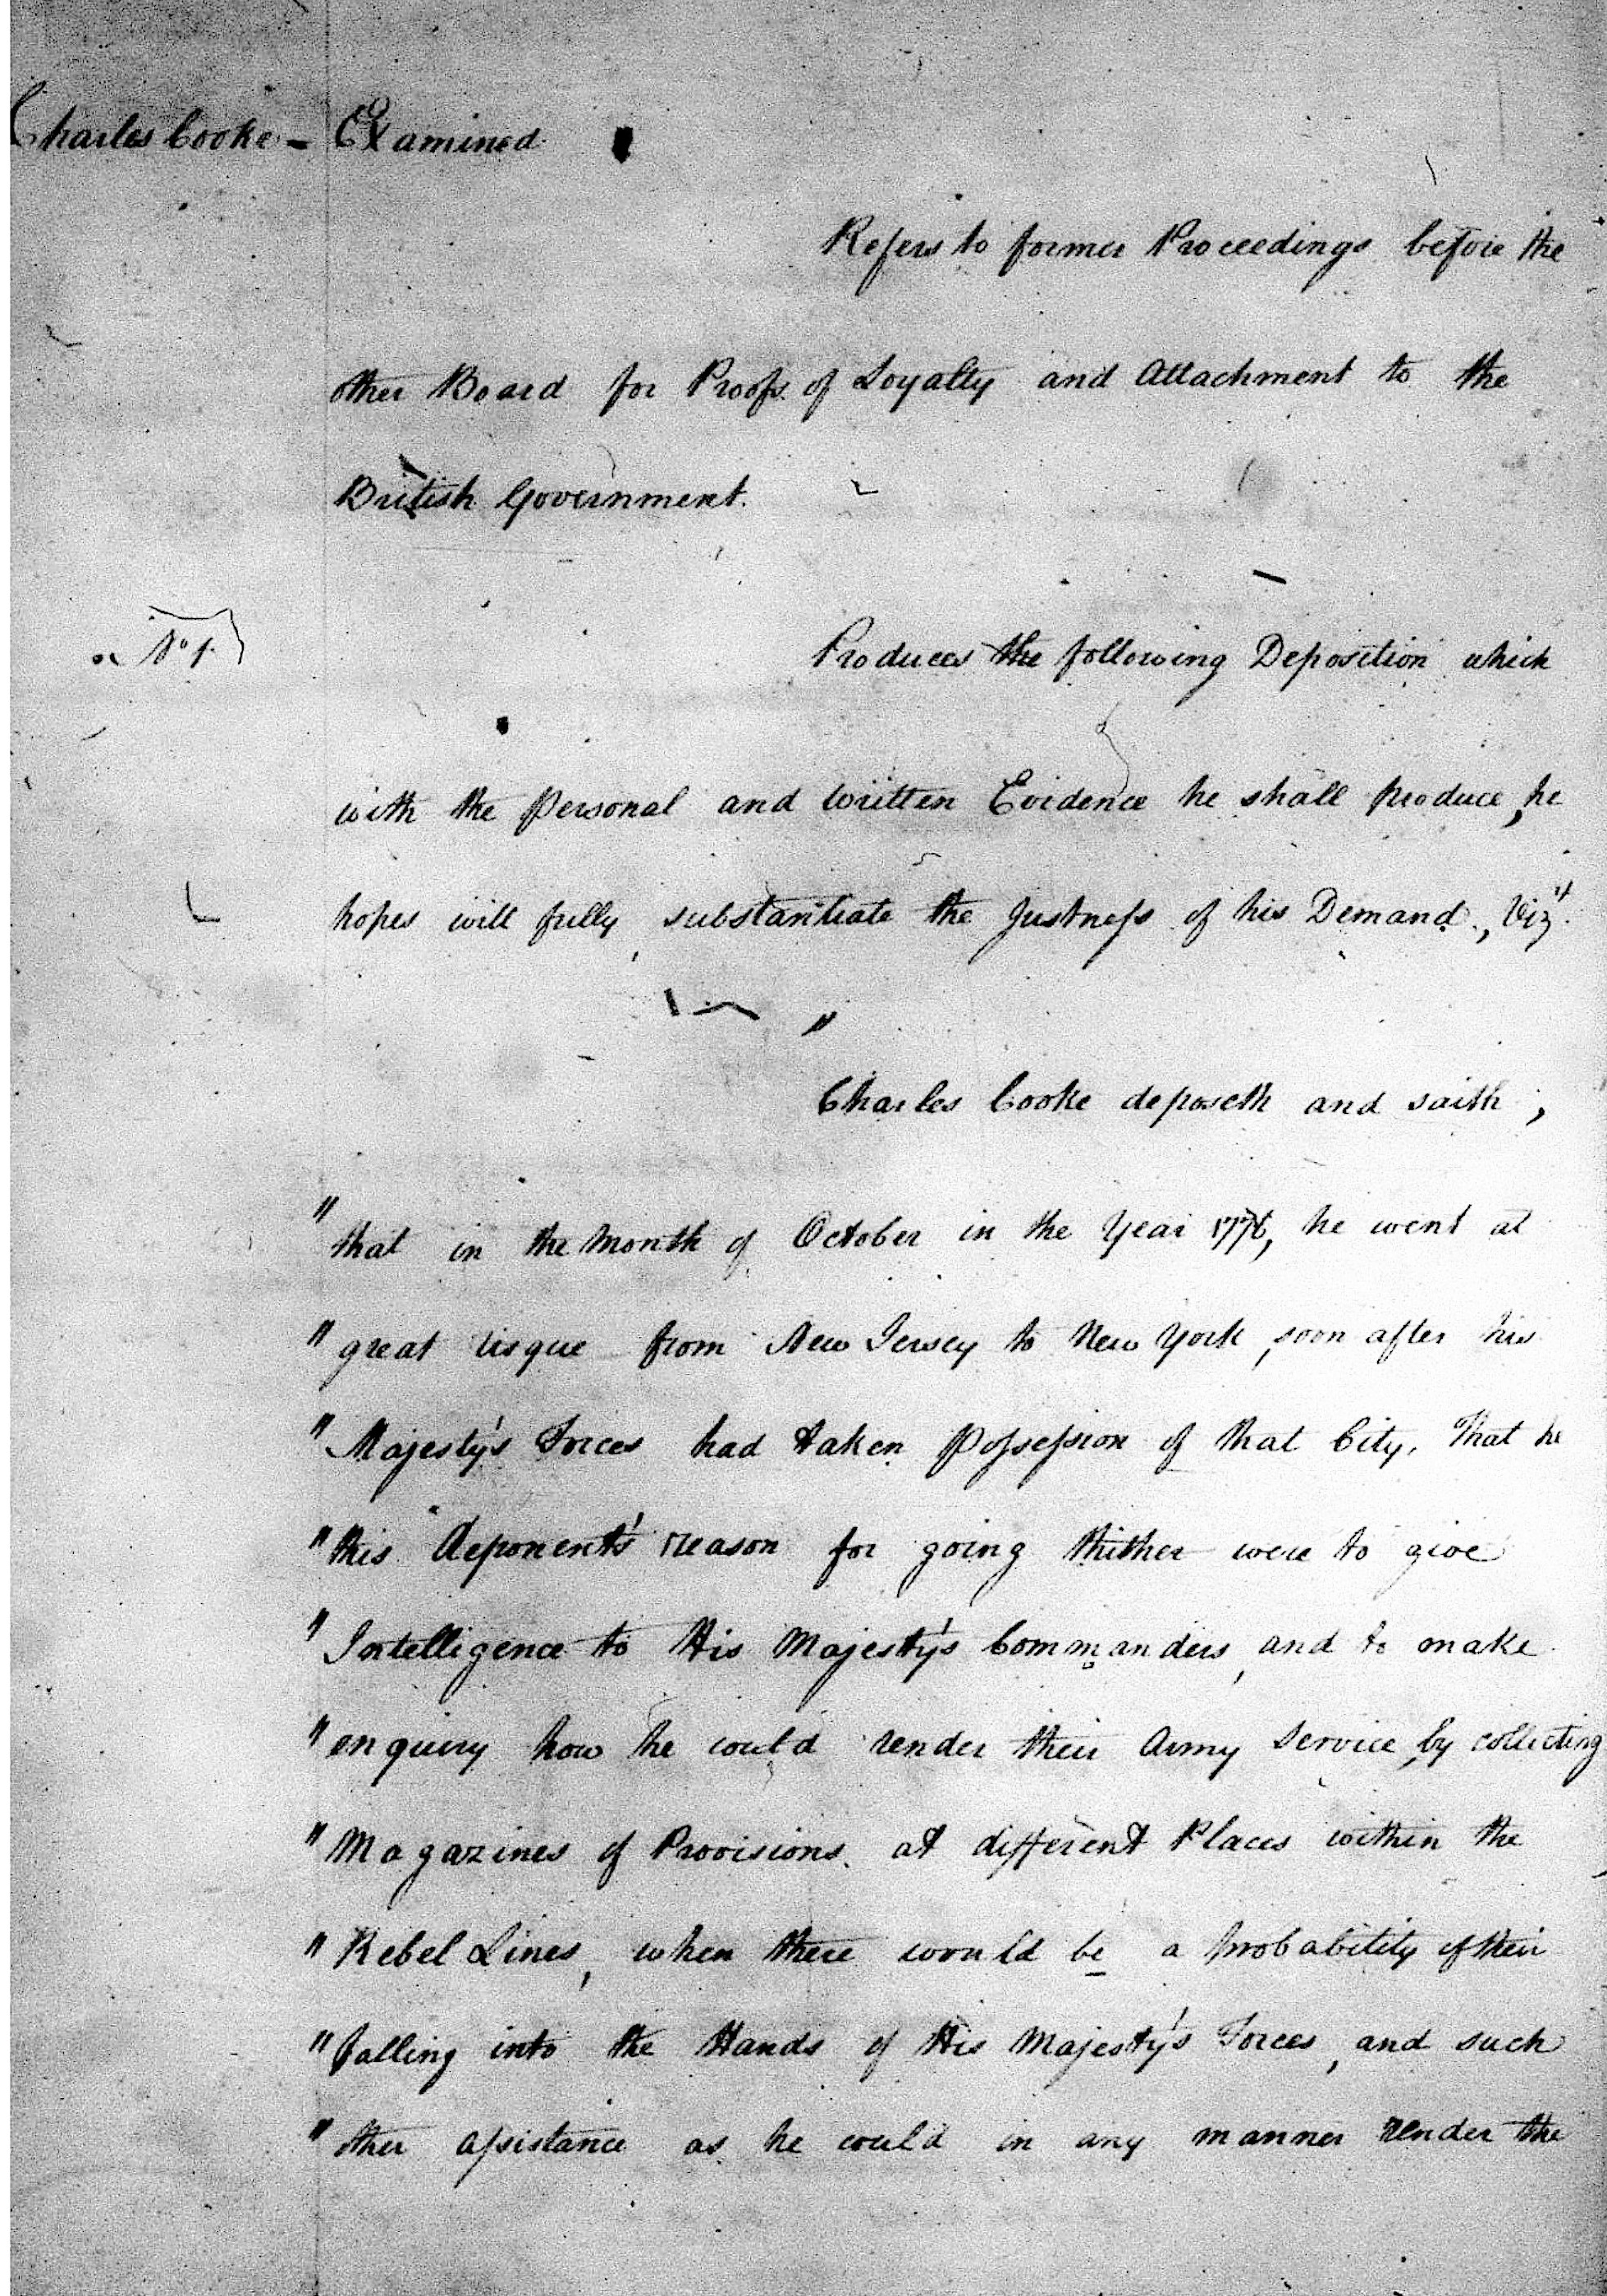 Charles Cooke - Examined
Refers to former Proceedings before the
other Board for Proofs of Loyalty and Attachment to the
British Government.
No 1.
Produces the following Deposition which
with the Personal and written Evidence he shall produce, he
hopes will fully substantiate the Justness of his Demand, Vizt.
"
Charles Cooke deposeth and saith,
" that in the Month of October in the Year 1776, he went at
" great risque from New Jersey to New York, soon after his
" Majesty's Forces had taken Possession of that City, That he
" this Deponent's reason for going thither were to give
" Intelligence to His Majesty's Commanders, and to make
" enquiry how he could render their Army Service, by collecting
" Magazines of Provisions at different Places within the
" Rebel Lines, when there would be a probability of their
" falling into the Hands of His Majesty's Forces, and such
" other assistance as he could in any manner render the